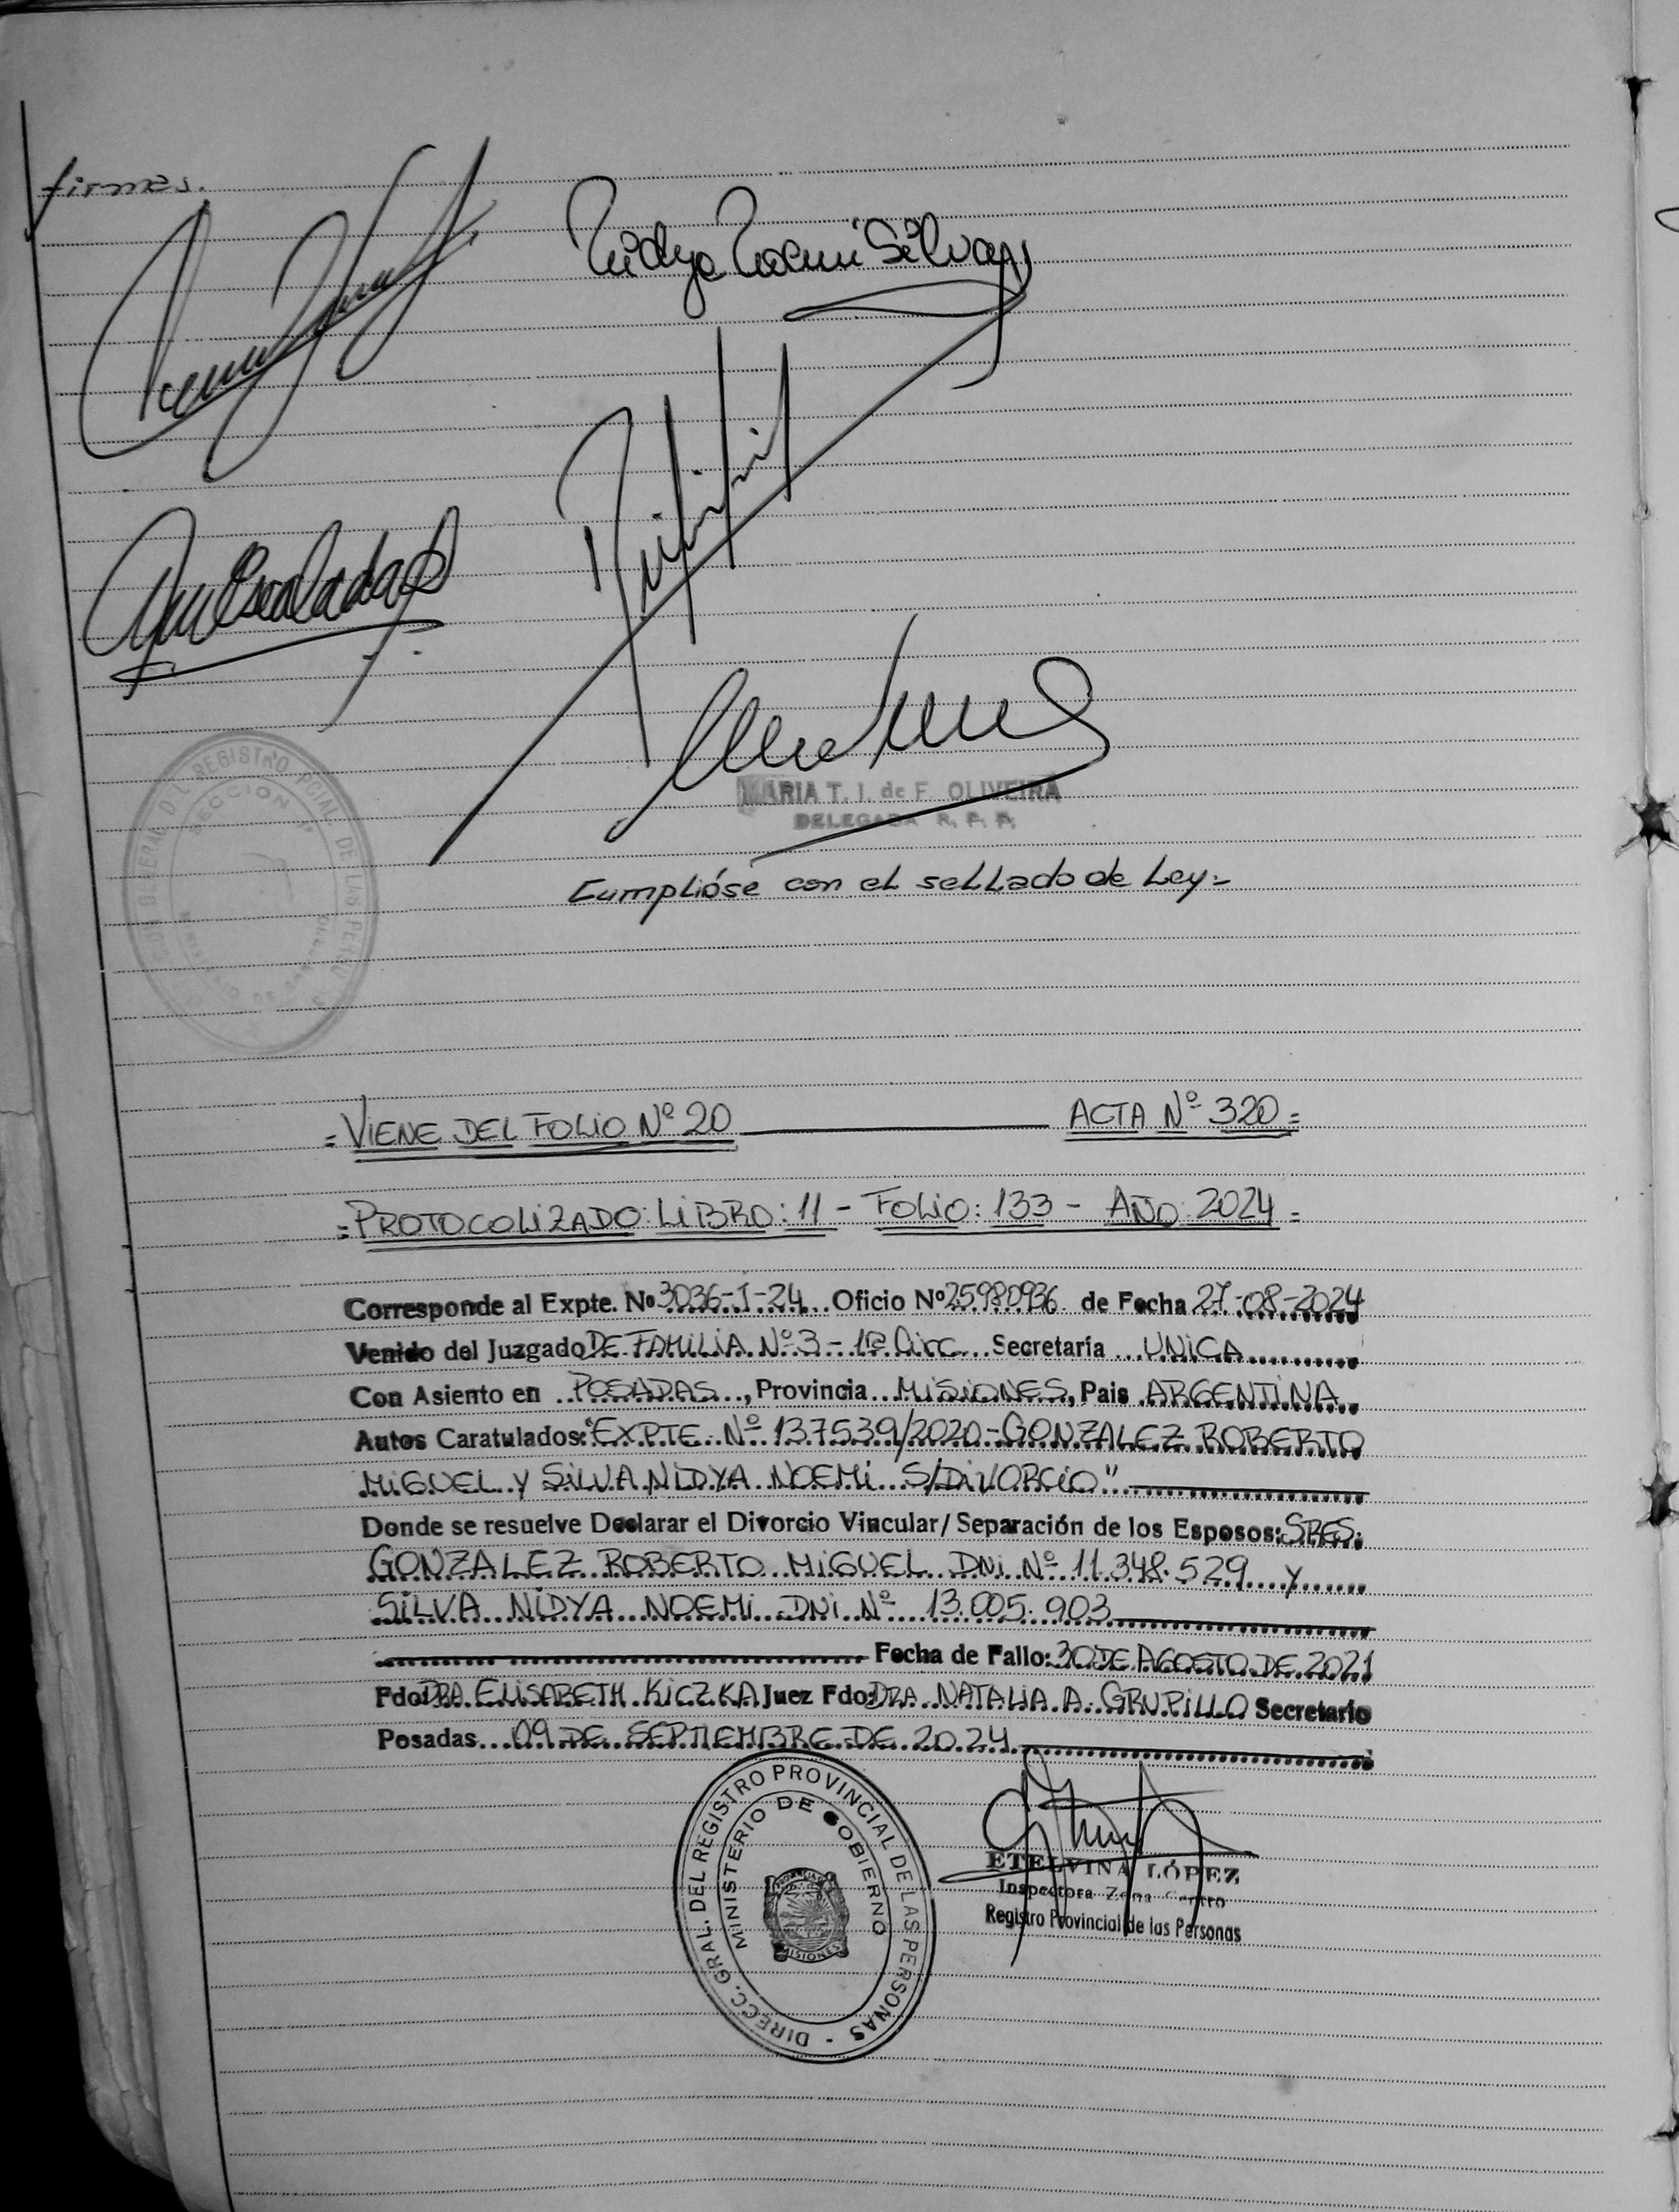 firmas.
Nidya Noemi Silva
MARIA T. I. de F. OLIVEIRA
DELEGADA R. P. P.
Cumplióse con el sellado de Ley.=
REGISTRO PCIAL. DE LAS PERSONAS
SECCION
= VIENE DEL FOLIO Nº 20 ACTA Nº 320 =
= PROTOCOLIZADO: LIBRO: 11 - FOLIO: 133 - AÑO: 2024 =
Corresponde al Expte. Nº 3036-I-24 Oficio Nº 25980936 de Fecha 27-08-2024
Venido del Juzgado DE FAMILIA Nº 3 - 1ra Circ. Secretaría UNICA
Con Asiento en POSADAS, Provincia MISIONES, Pais ARGENTINA
Autos Caratulados: "EXPTE Nº 137539/2020 - GONZALEZ ROBERTO
MIGUEL Y SILVA NIDYA NOEMI S/DIVORCIO"
Donde se resuelve Declarar el Divorcio Vincular / Separación de los Esposos: SRES.
GONZALEZ ROBERTO MIGUEL DNI Nº 11.348.529 y
SILVA NIDYA NOEMI DNI Nº 13.005.903
Fecha de Fallo: 30 DE AGOSTO DE 2021
Fdo: DRA. ELISABETH KICZKA Juez Fdo: DRA. NATALIA A. GRUPILLO Secretario
Posadas 09 DE SEPTIEMBRE DE 2024
DIRECC. GRAL. DEL REGISTRO PROVINCIAL DE LAS PERSONAS -
MINISTERIO DE GOBIERNO
MISIONES
ETELVINA LÓPEZ
Inspectora Zona Centro
Registro Provincial de las Personas